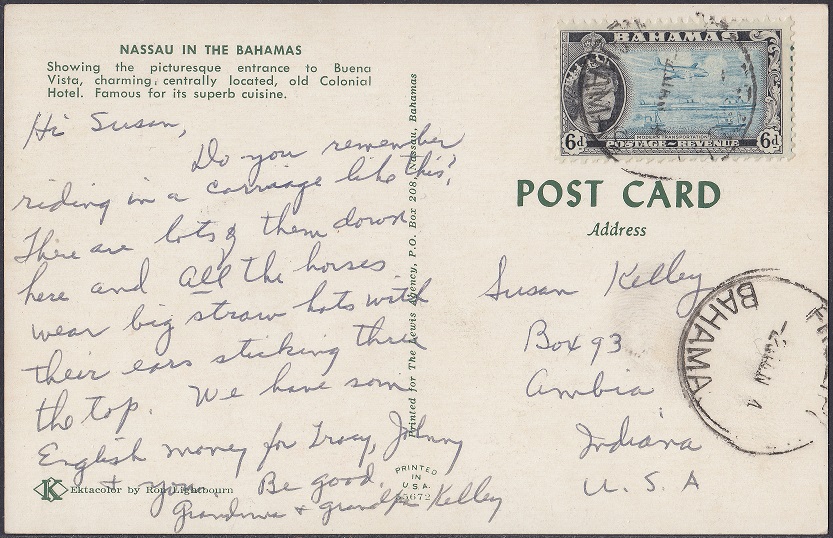 NASSAU IN THE BAHAMAS
Showing the picturesque entrance to Buena
Vista, charming, centrally located, old Colonial
Hotel. Famous for its superb cuisine.
Hi Susan,
Do you remember
riding in a carriage like this?
There are lots of them down
here and all the horses
wear big straw hats with
their ears sticking thru
the top. We have som
English money for Tracy, Johnny
+ you. Be good.
Grandma + grandpa Kelley
Ektacolor by Ron Lightbourn
Printed for The Lewis Agency, P.O. Box 208, Nassau, Bahamas
PRINTED
IN
U.S.A.
BAHAMAS
6d
6d
MODERN TRANSPORTATION
POSTAGE REVENUE
POST CARD
Address
Susan Kelley
Box 93
Ambia
Indiana
U. S. A
BAHAMA